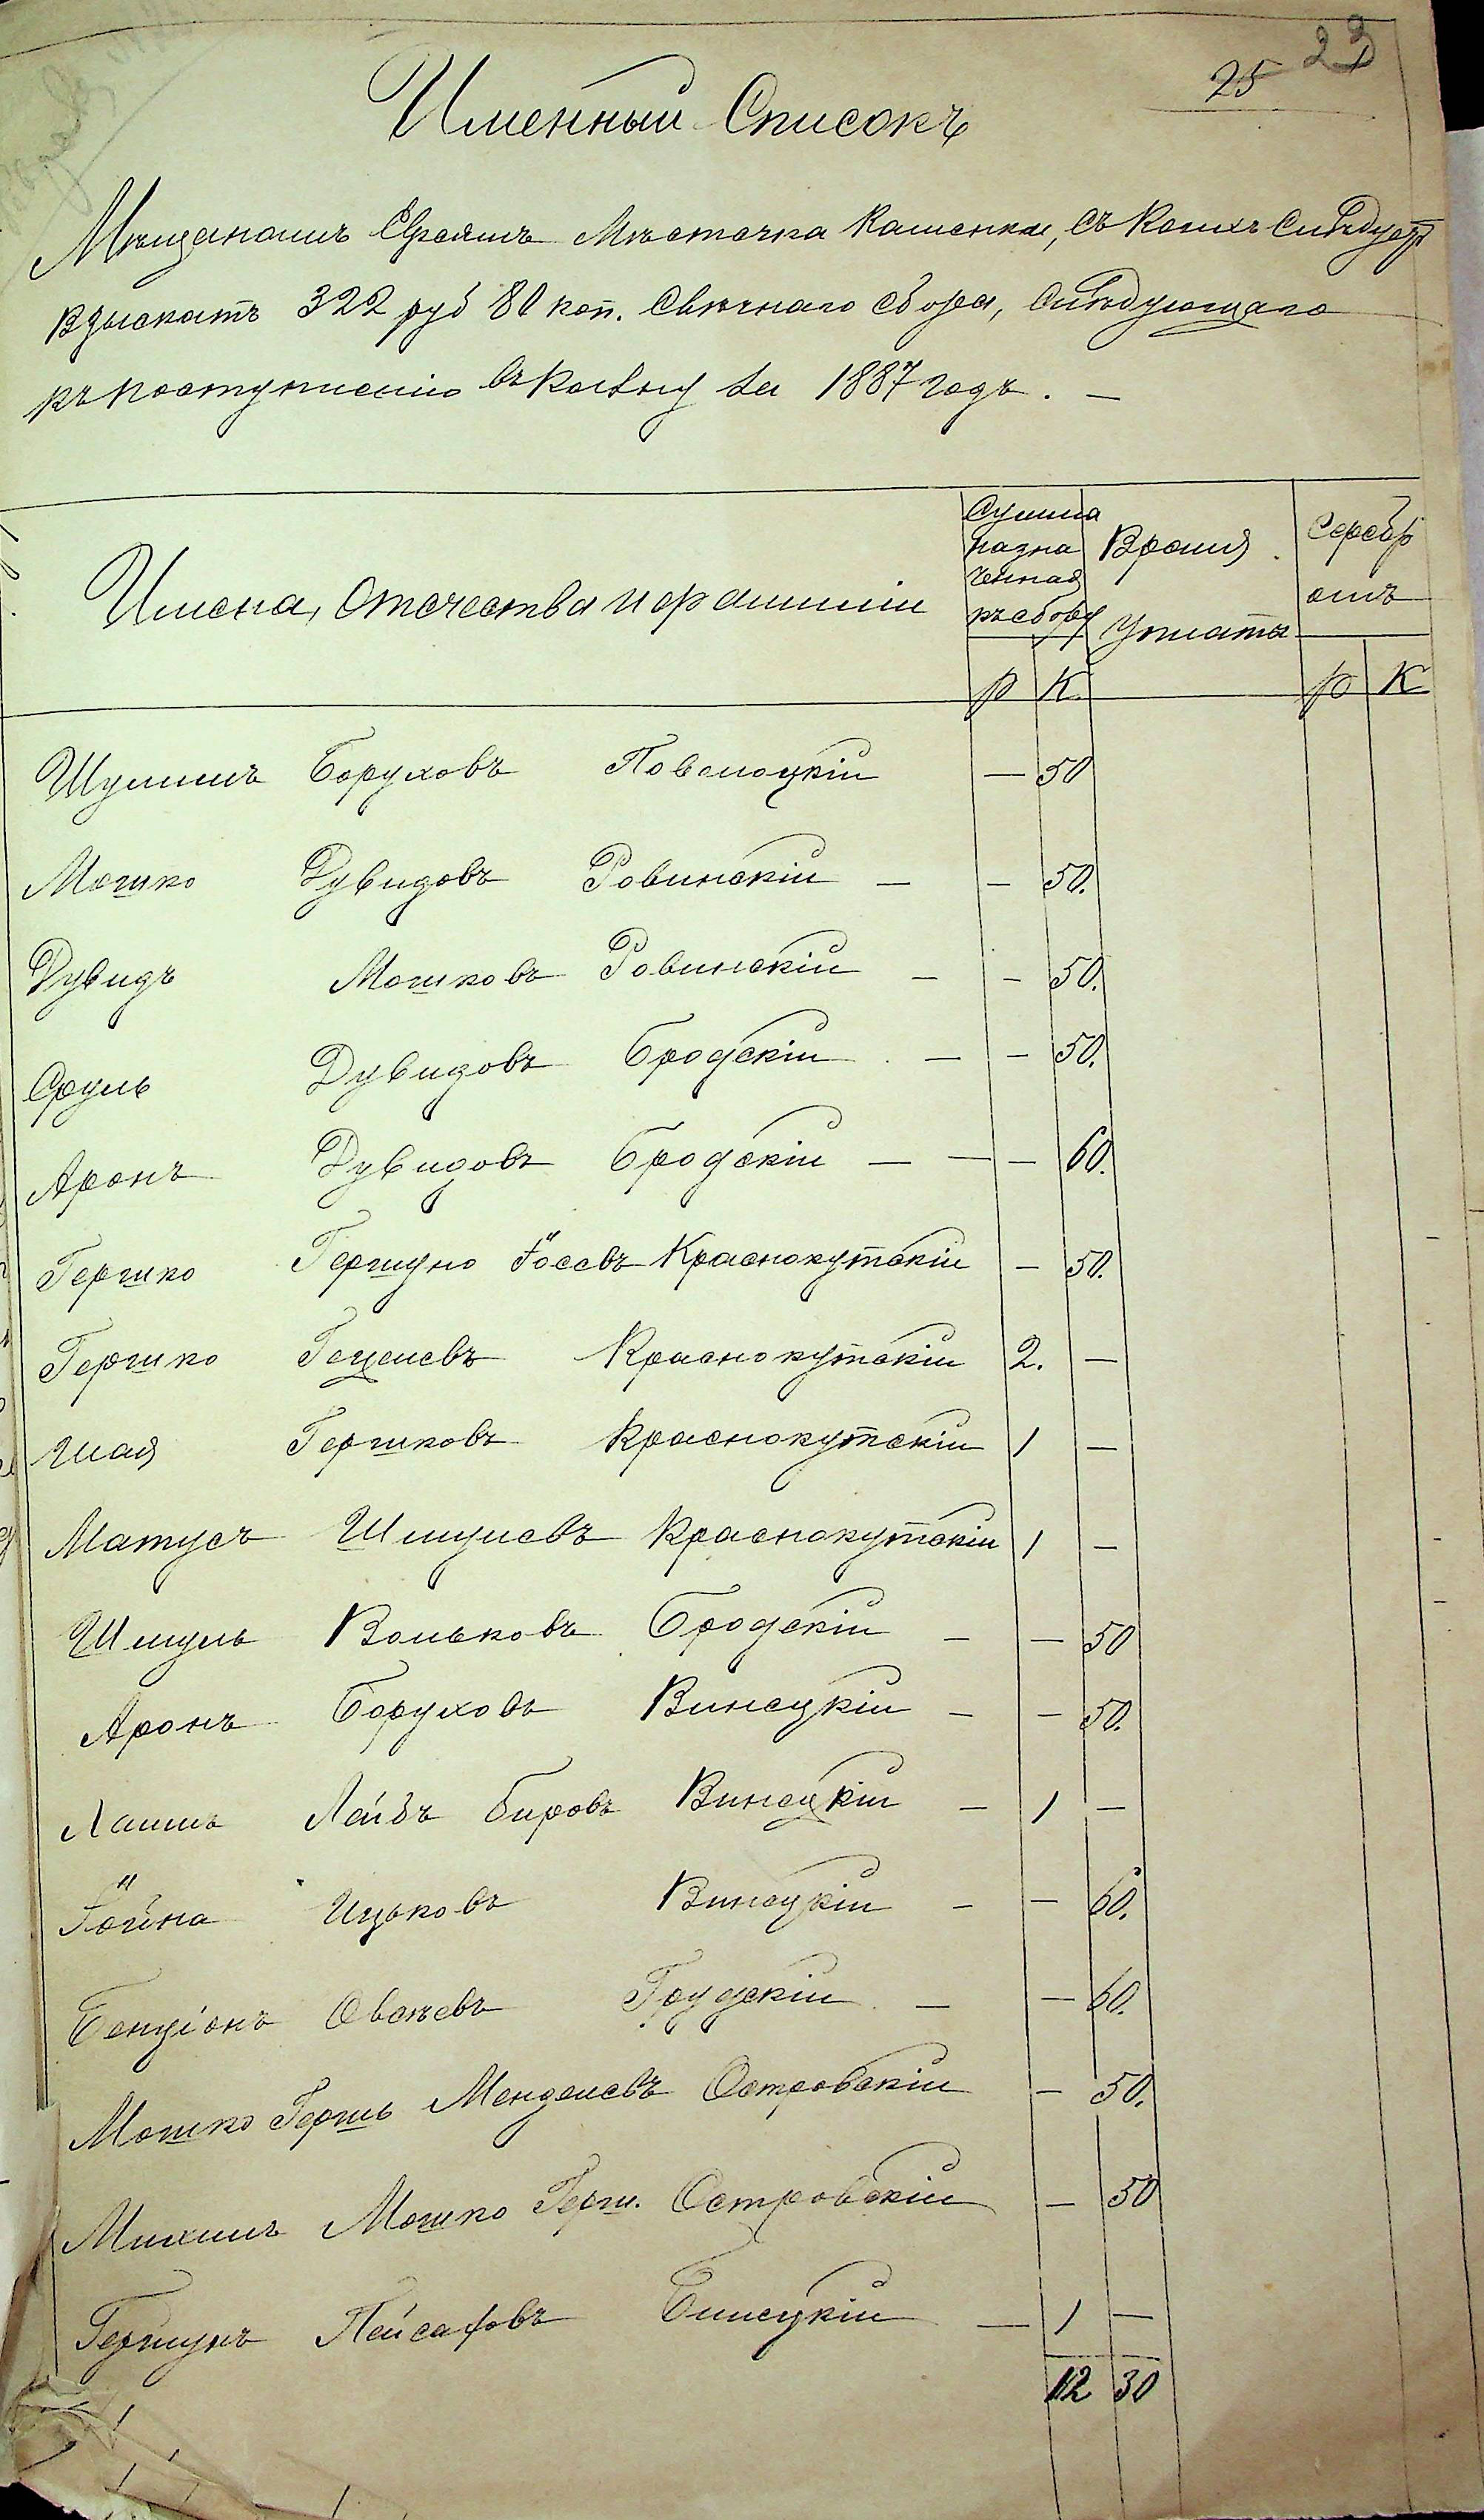 25 23
Именный Списокъ
Мѣщанамъ Евреямъ Мѣстечка Каменки, съ Коихъ слѣдуетъ
взыскать 322 руб 80 коп. Свѣчнаго сбора, слѣдующаго
къ поступленію въ Казну за 1887 годъ. —
Имена, Отечества и фамиліи
Сумма назна ченная къ сбору
Время уплаты
Серебр омъ
р К. р К
Шулимъ Боруховъ Поволоцкій — 50
Мошко Дувидовъ Ровинскій — — 50.
Дувидъ Мошковъ Ровинскій — — 50.
Сруль Дувидовъ Бродскій — — 50.
Аронъ Дувидовъ Бродскій — — — 60.
Гершко Гершуно Іосевъ Краснокутскій — 50.
Гершко Гецелевъ Краснокутскій 2. —
Шая Гершковъ Краснокутскій 1 —
Матусъ Шмулевъ Краснокутскій 1 —
Шмуль Вольковъ Бродскій — — 50
Аронъ Боруховъ Винецкій — — 50.
Лейбъ Бировъ Винецкій — 1 —
Іойна Ицьковъ Винецкій — — 60.
Бенціонъ Овсѣевъ Грудскій — — 60.
Мошко Гершь Менделевъ Островскій — 50.
Михиль Мошко Герш. Островскій — 50
Гершунъ Пейсаховъ — 1 —
12 30